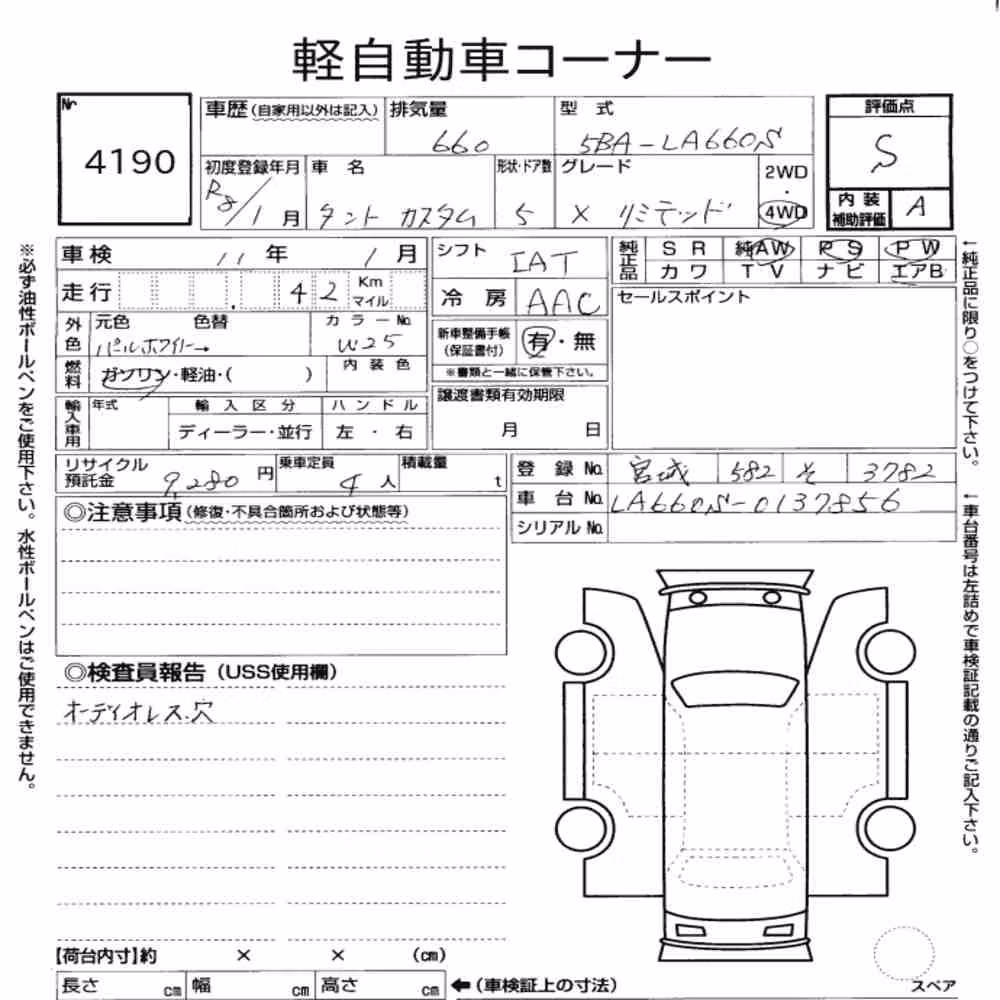 軽自動車コーナー
Nr
4190
車歴(自家用以外は記入)
排気量
660
型 式
5BA-LA660S
評価点
S
初度登録年月
R8/1月
車 名
タント カスタム
形状・ドア数
5
グレード
X リミテッド
2WD
・
4WD
内 装
補助評価
A
車検
11年 1月
シフト
IAT
純正品
S R 純AW P S P W
カワ T V ナビ エアB
走行
42
Km
マイル
冷 房
AAC
セールスポイント
外色
元色 色替
パールホワイト→
カラーNo.
W25
新車整備手帳
(保証書付)
有・無
※書類と一緒に保管下さい。
燃料
ガソリン・軽油・( )
内 装 色
譲渡書類有効期限
月 日
輸入車用
年式
輸 入 区 分
ディーラー・並行
ハ ン ド ル
左 ・ 右
リサイクル
預託金
9,280円
乗車定員
4人
積載量
t
登 録 No.
宮城 582 そ 3782
車 台 No.
LA660S-0137856
シリアル No.
◎注意事項(修復・不具合箇所および状態等)
◎検査員報告(USS使用欄)
オーディオレス.穴
【荷台内寸】約 × × (cm)
長さ cm 幅 cm 高さ cm
←(車検証上の寸法)
スペア
※必ず油性ボールペンをご使用下さい。水性ボールペンはご使用できません。
←純正品に限り○をつけて下さい。
←車台番号は左詰めで車検証記載の通りご記入下さい。